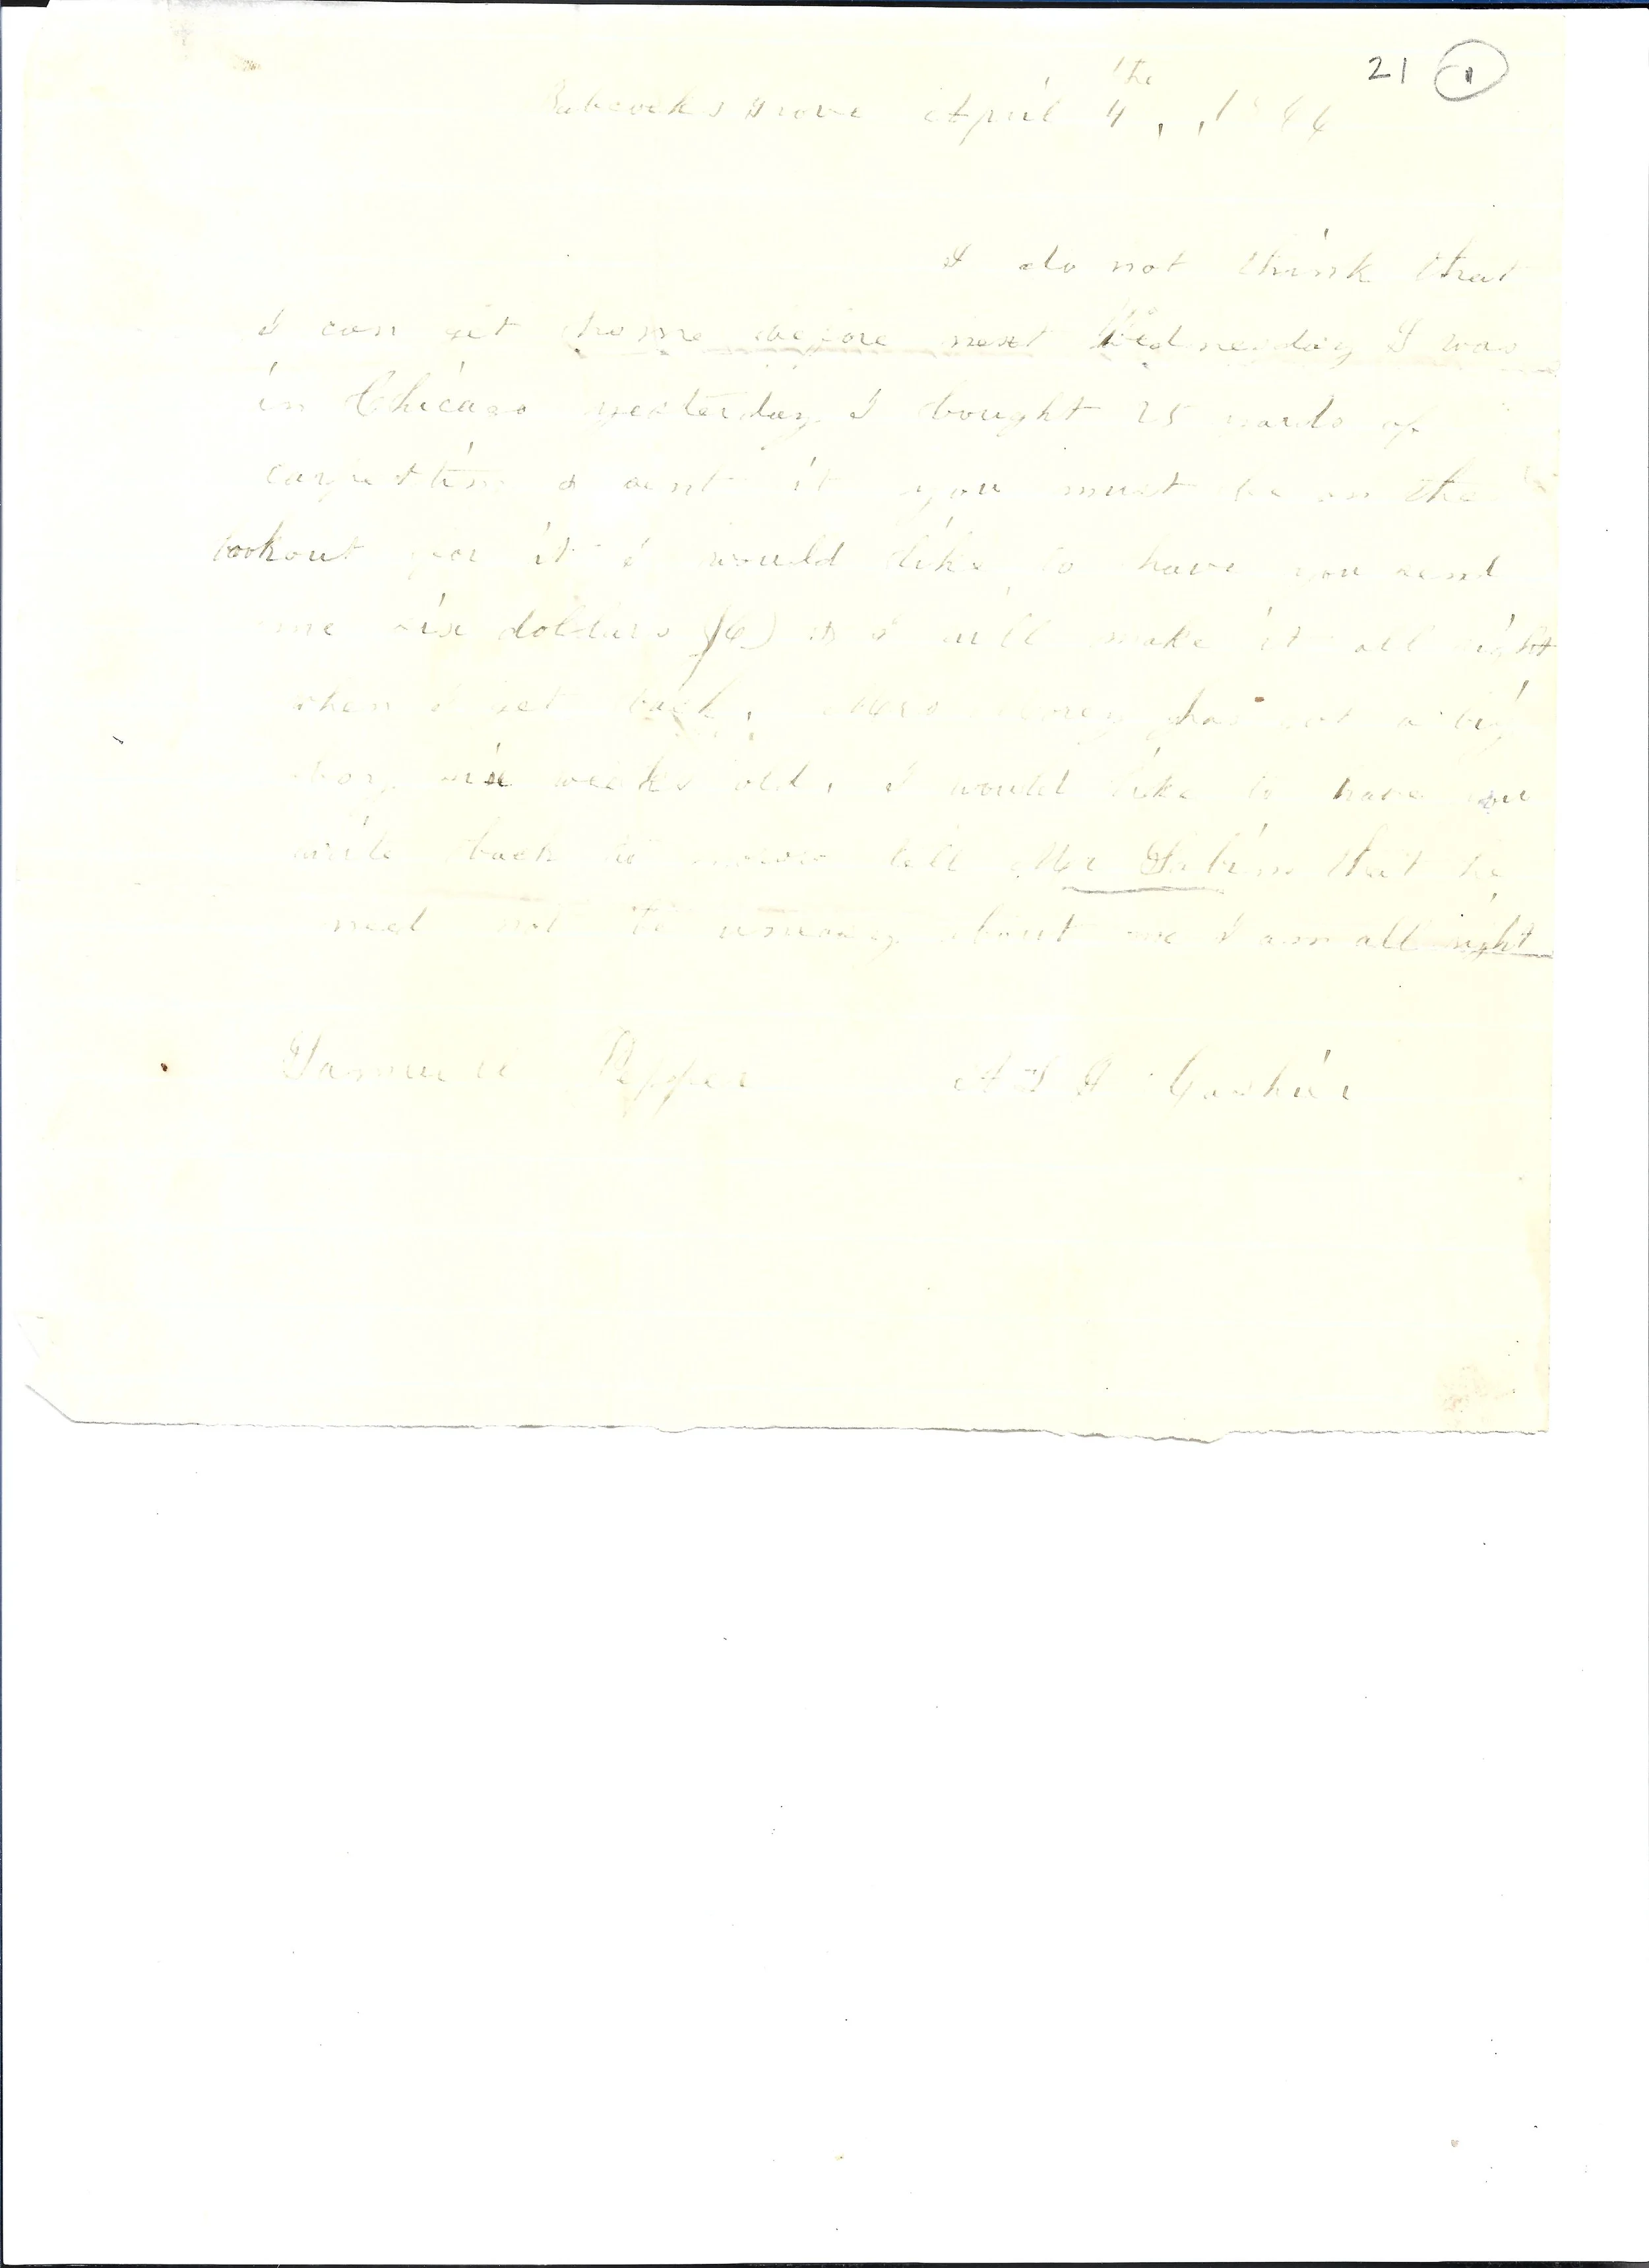 21 1
Babcocks Grove April 4 the, 1866
I do not think that
I can get home before next Wednesday I was
in Chicago yesterday I bought 25 yards of
carpeting & sent it you must be on the
lookout for it I would like to have you send
me six dollars (6) & I will make it all right
when I get back, Mrs has got a big
boy six weeks old, I would like to have you
write back to tell Mr Sabin that he
need not be uneasy about me I am all right
Sammuel Pepper A D J Cashier